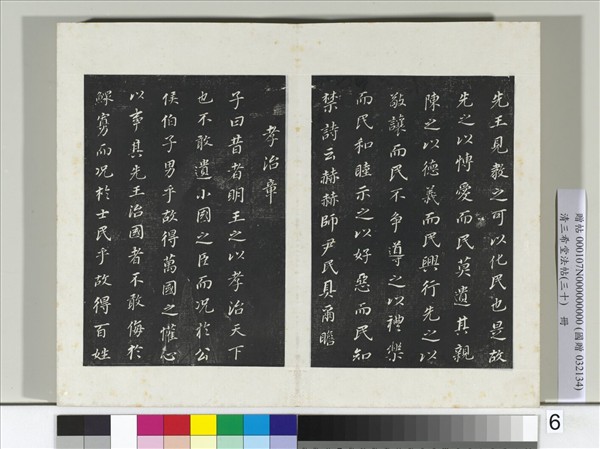 先王見教之可以化民也是故
先之以博愛而民莫遺其親
陳之以德義而民興行先之以
敬讓而民不爭導之以禮樂
而民和睦示之以好惡而民知
禁詩云赫赫師尹民具爾瞻
孝治章
子曰昔者明王之以孝治天下
也不敢遺小國之臣而況於公
侯伯子男乎故得萬國之懽心
以事其先王治國者不敢侮於
鰥寡而況於士民乎故得百姓
贈帖 000107N000000000 (國贈 032134)
清三希堂法帖(三十) 冊
6